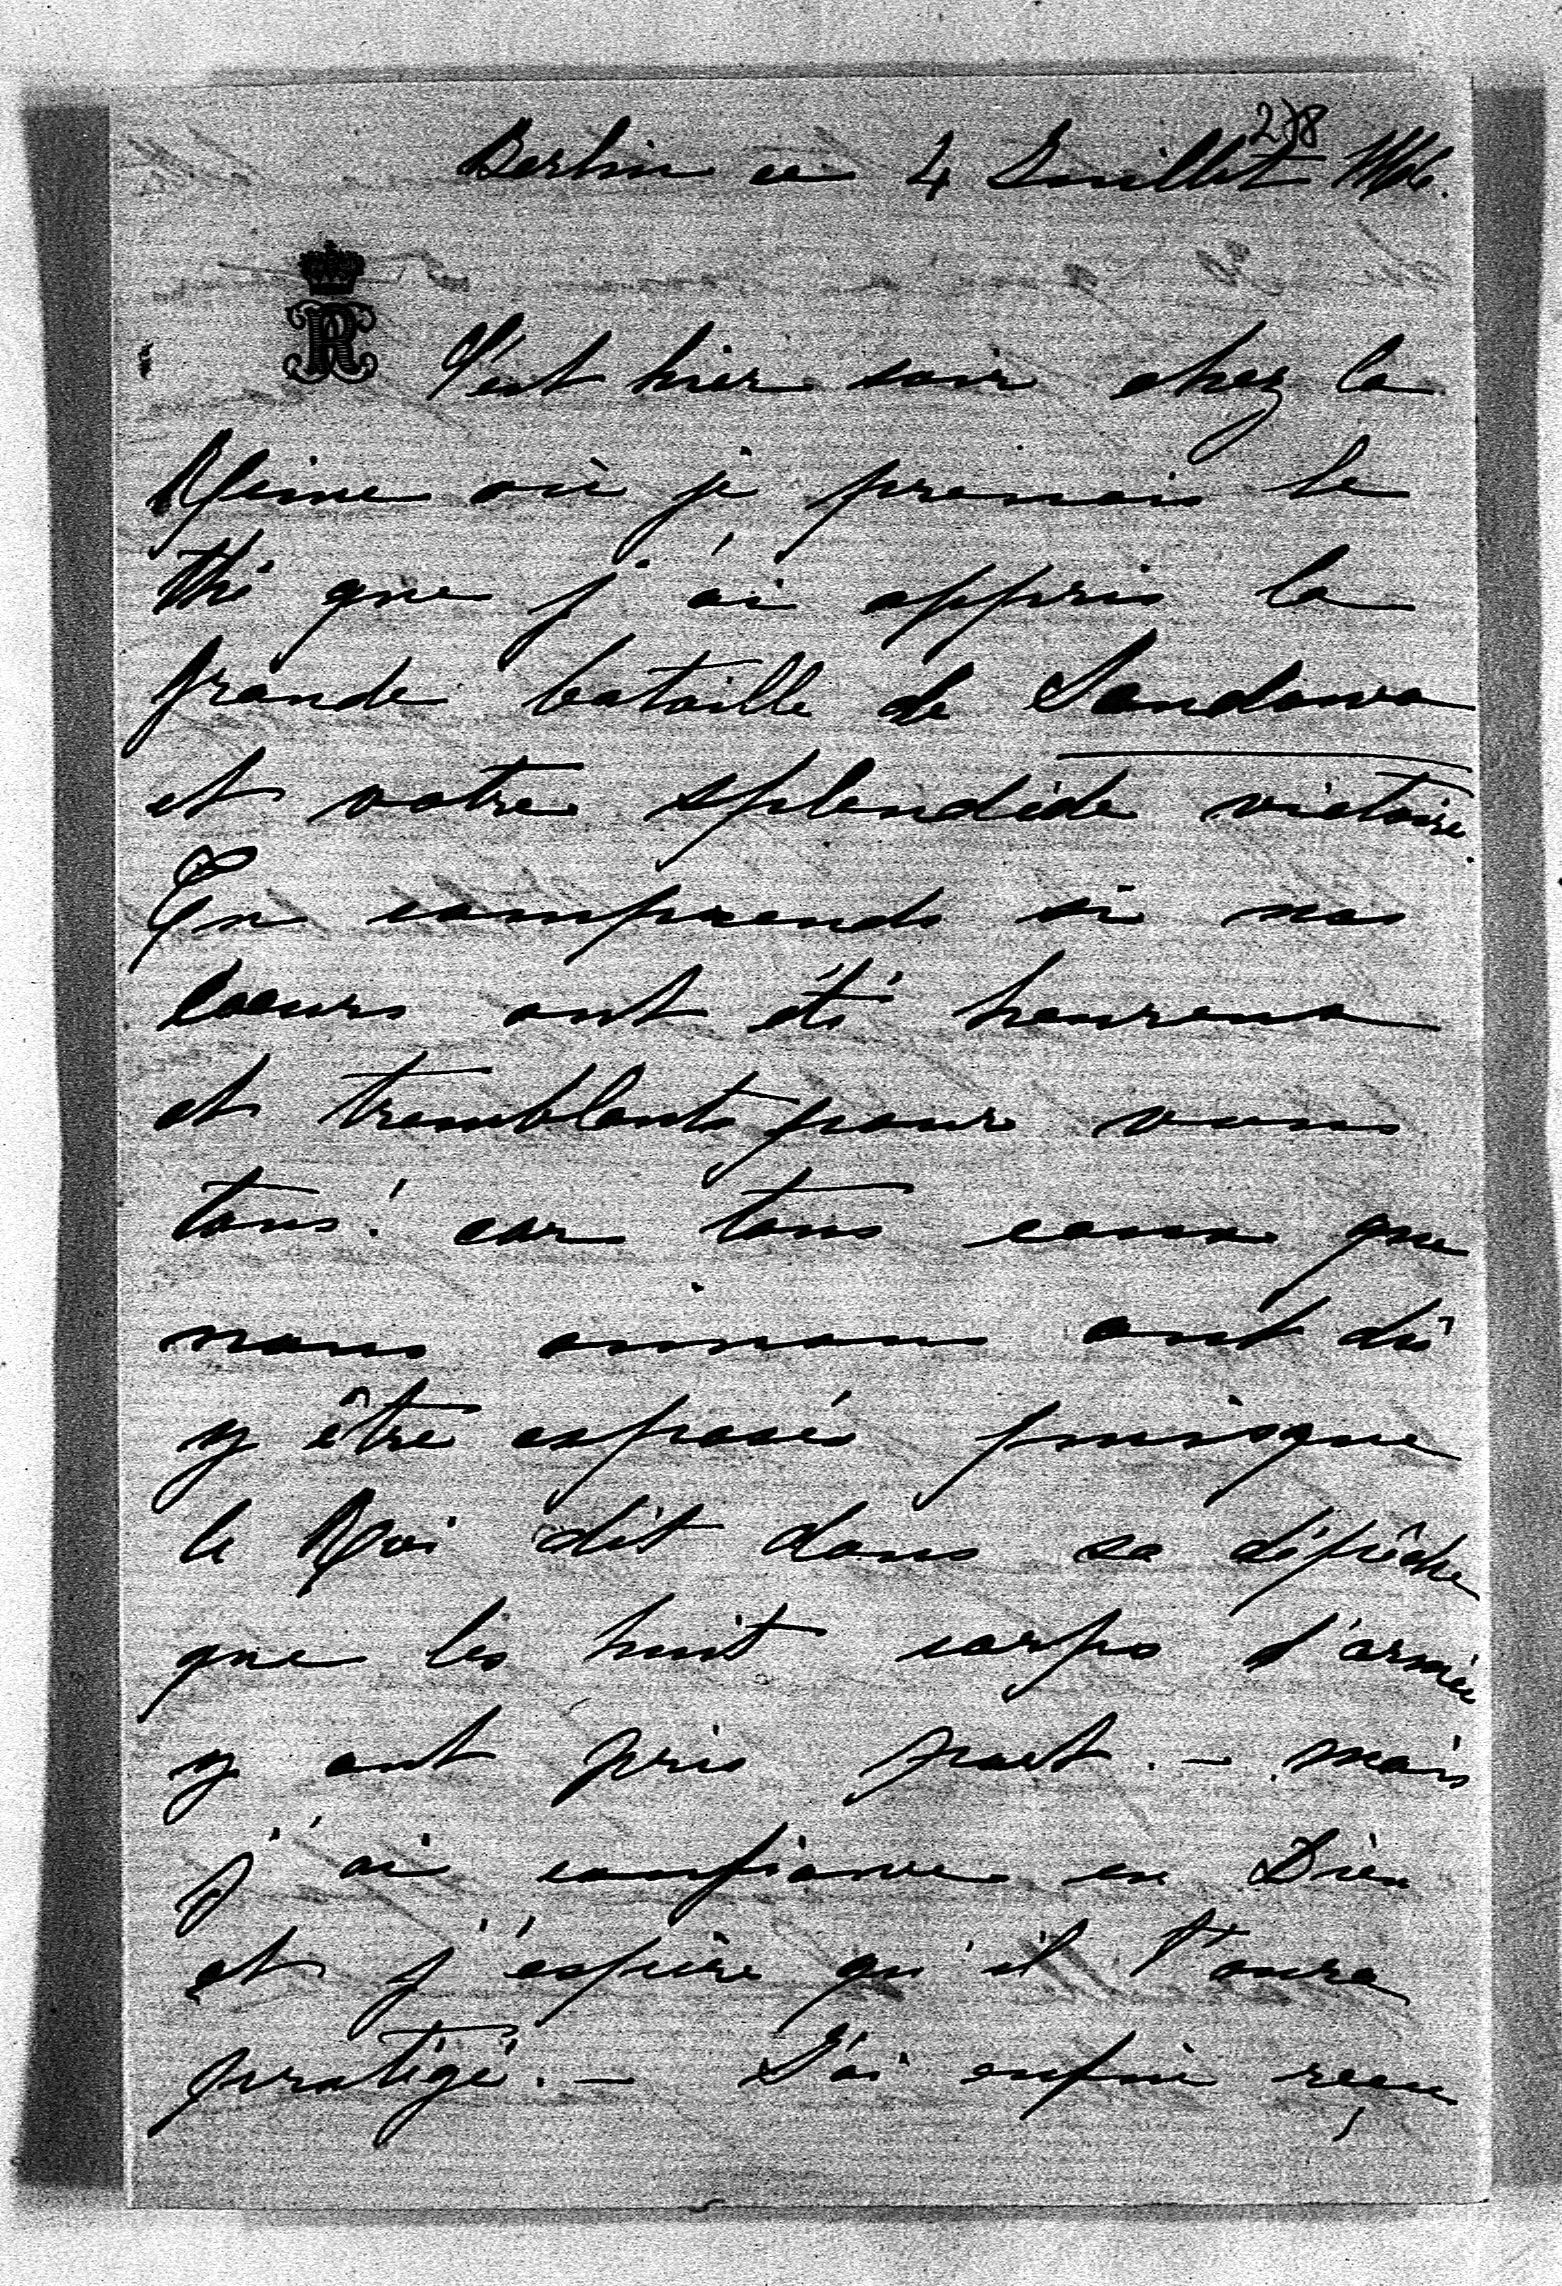 278
Berlin ce 4 Juillet 1866.
R
C'est hier soir chez la
Reine où je prenais le
thé que j'ai appris la
grande bataille de Sandowa
et votre splendide victoire.
Tu comprends si nos
coeurs ont été heureux
et tremblants pour vous
tous! car tous ceux que
nous aimons ont dû
y être exposés puisque
le Roi dit dans sa dépêche
que les huit corps d'armée
y ont pris part. – mais
j'ai confiance en Dieu
et j'espère qu'il t'aura
protégé. – J'ai enfin reçu